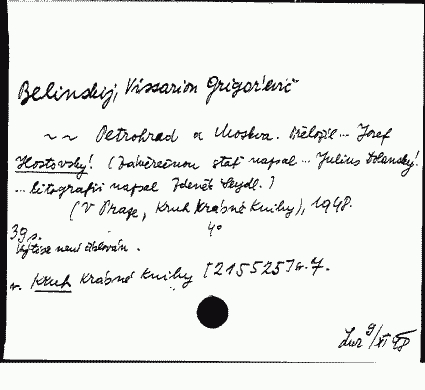 Belinskij, Vissarion Grigor'evič
~ ~ Petrohrad a Moskva. Přeložil... Josef
Hostovský. (Závěrečnou stať napsal... Julius Dolanský.
... litografii napsal Zdeněk Seydl.)
(V Praze, Kruh krásné knihy), 1948.
39 s. 4°
Výtisk není číslován.
v. Kruh krásné knihy [215525] sv. 7.
9/XI 48